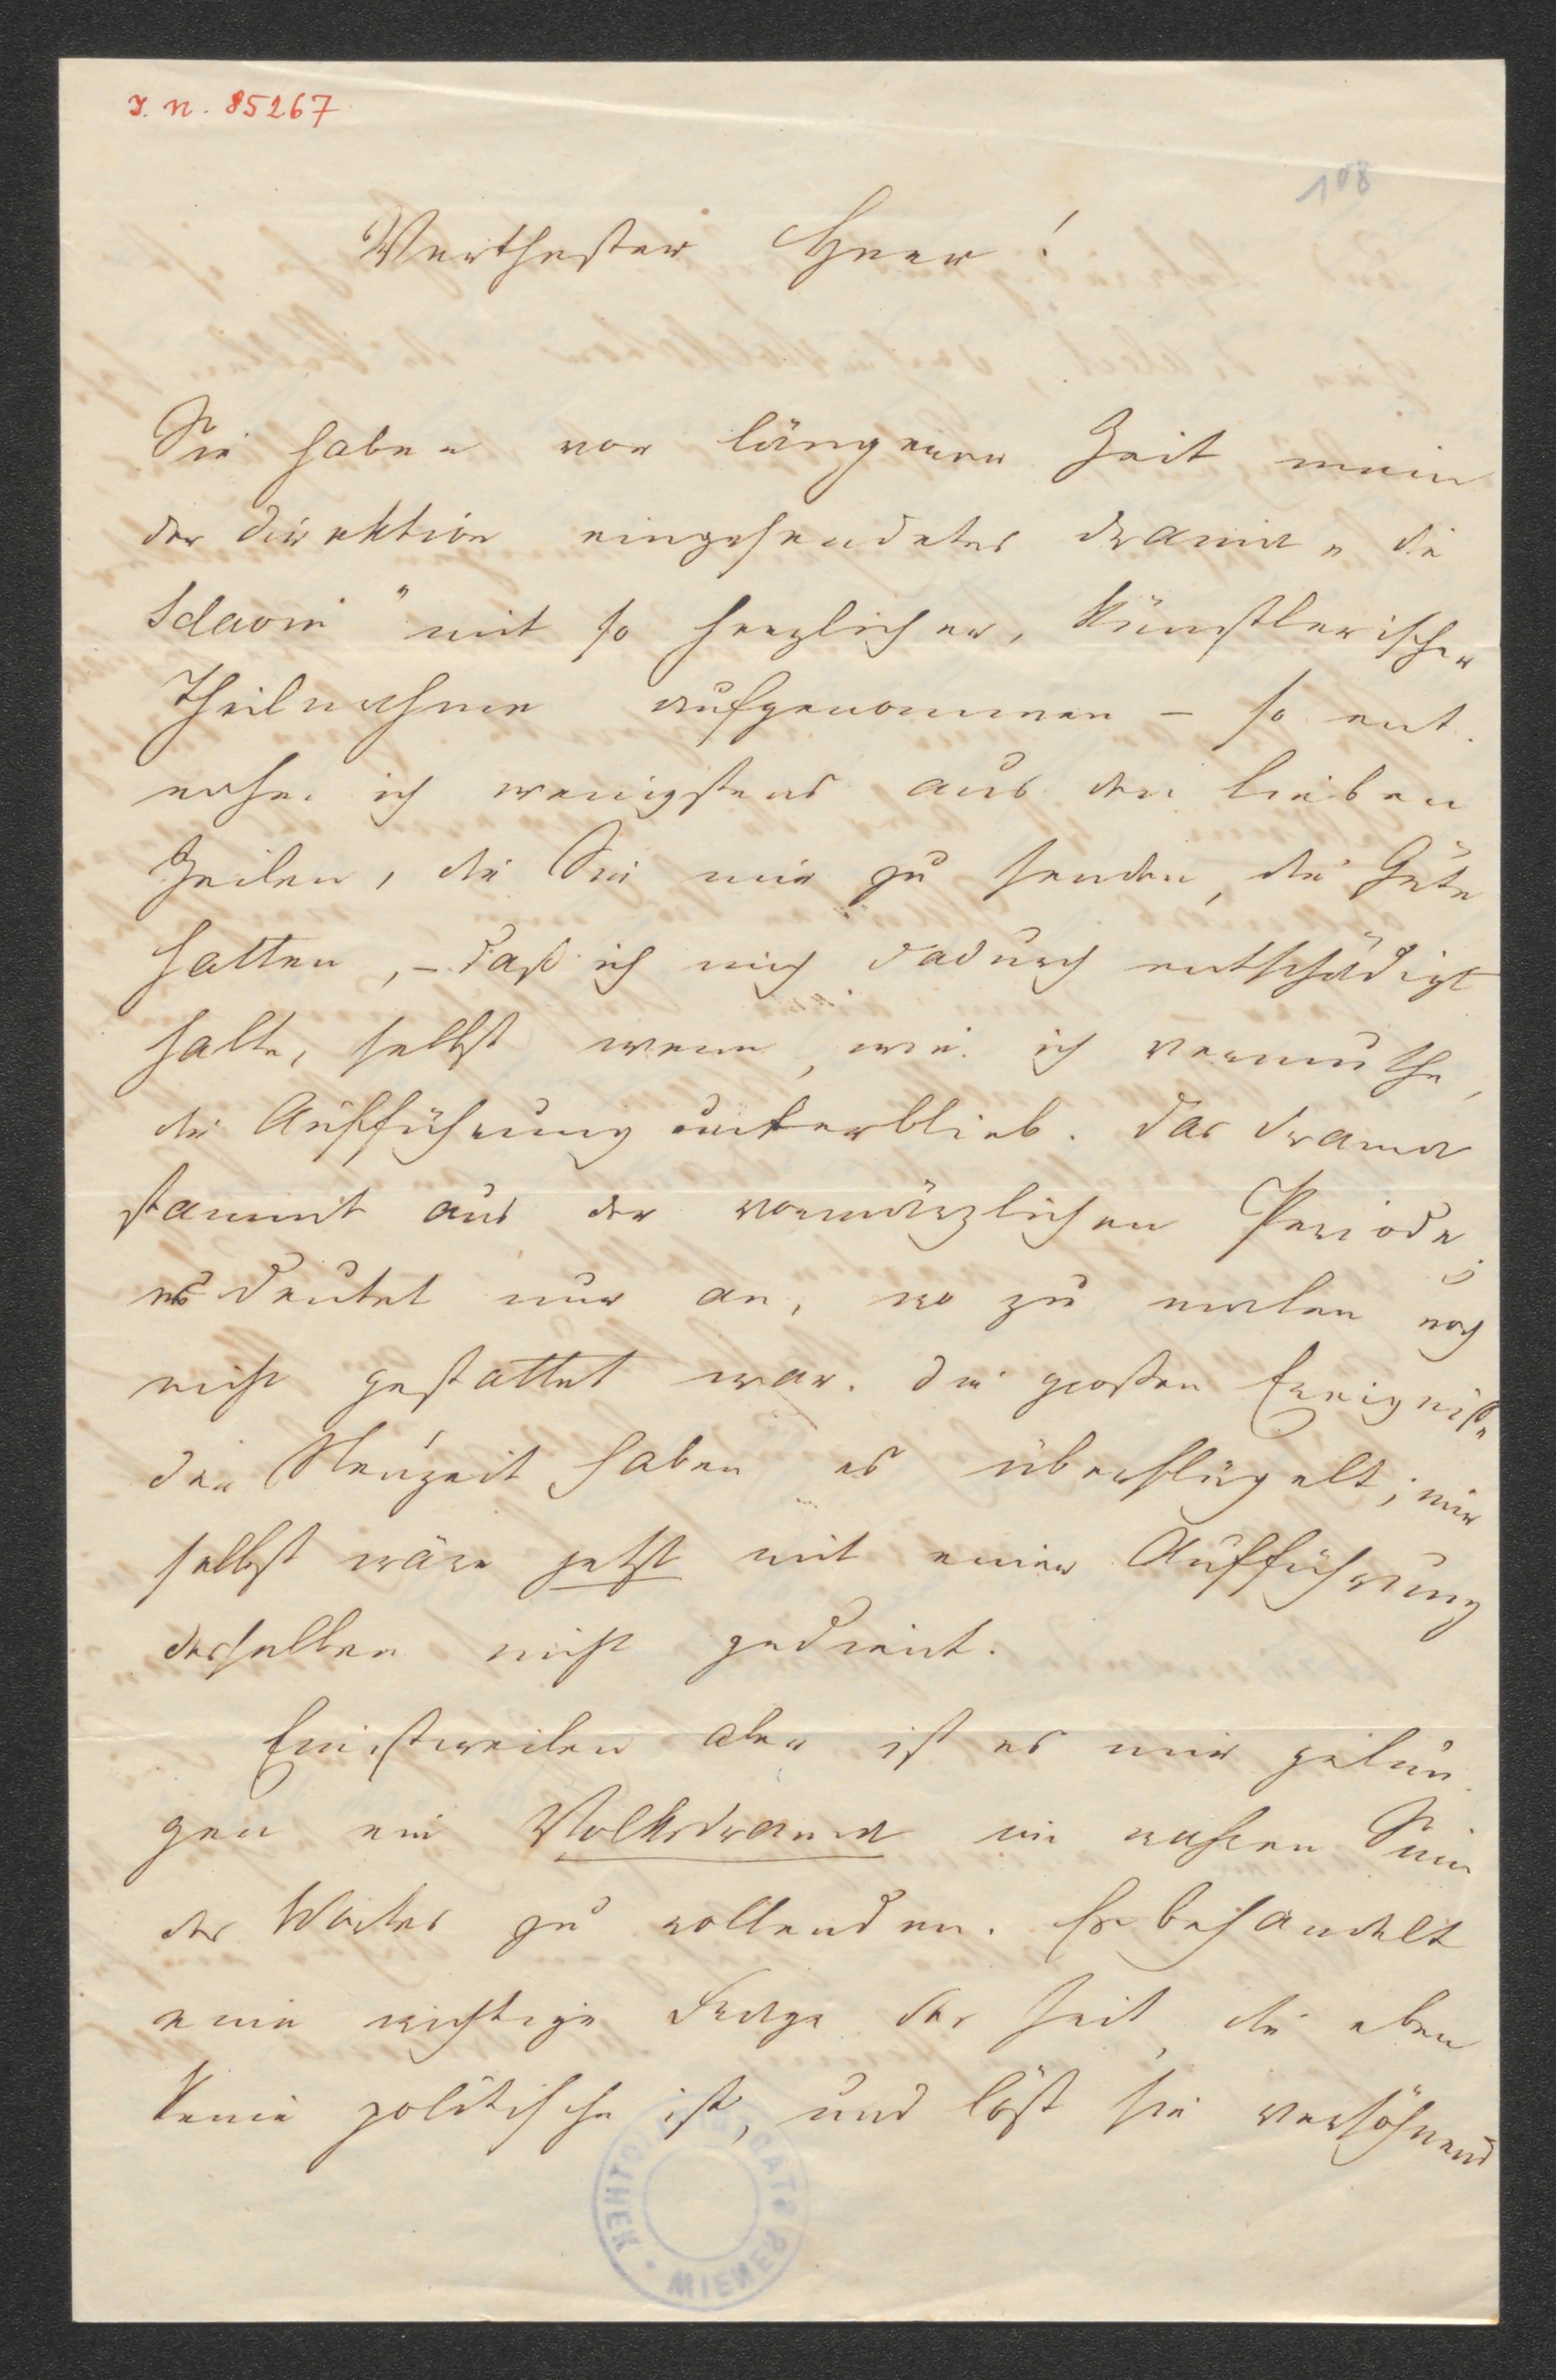 I. N. 85267
108
Werthester Herr!
Sie haben vor längerer Zeit mein
der Direktion eingesendetes Drama „die
Sclavin" mit so herzlicher, künstlerischer
Theilnahme aufgenommen – so ent-
nehme ich wenigstens aus den lieben
Zeilen, die Sie mir zu senden, die Güte
hatten, – daß ich mich dadurch entschädigt
halte, selbst wenn, wie ich vermuthe,
die Aufführung unterblieb. Das Drama
stammt aus der vormärzlichen Periode;
es deutet nur an, wo zu malen noch
nicht gestattet war. Die großen Ereigniße
der Neuzeit haben es überflügelt; mir
selbst wäre jetzt mit einer Aufführung
desselben nicht gedient.
Einstweilen aber ist es mir gelun-
gen ein Volksdrama im wahren Sinn
des Wortes zu vollenden. Es behandelt
eine wichtige Frage der Zeit, die eben
keine politische ist, und löst sie versöhnend
WIENER STADT BIBLIOTHEK